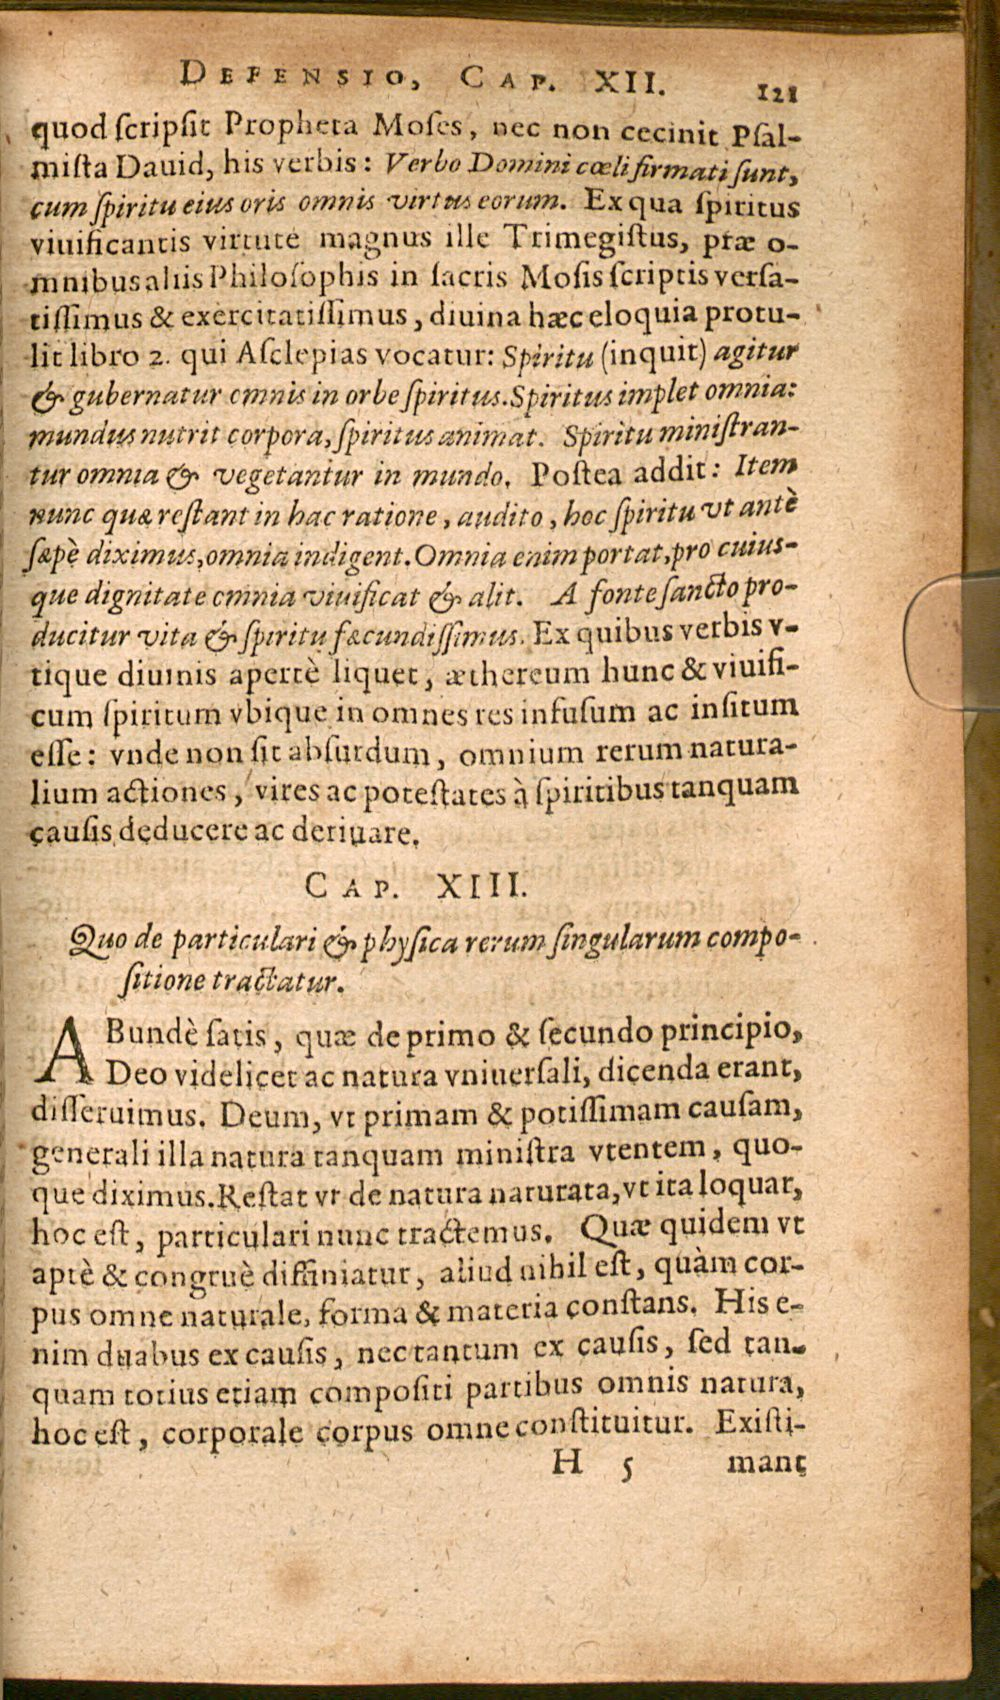 DEFENSIO, CAP. XII. 121
quod ſcripſit Propheta Moſes, nec non cecinit Pſal-
miſta Dauid, his verbis: Verbo Domini cœli firmati ſunt,
cum ſpiritu eius oris omnis virtus eorum. Ex qua ſpiritus
viuificantis virtute magnus ille Trimegiſtus, præ o-
mnibus aliis Philoſophis in ſacris Moſis ſcriptis verſa-
tiſſimus & exercitatiſſimus, diuina hæc eloquia protu-
lit libro 2. qui Aſclepias vocatur: Spiritu (inquit) agitur
& gubernatur omnis in orbe ſpiritus. Spiritus implet omnia:
mundus nutrit corpora, ſpiritus animat. Spiritu miniſtran-
tur omnia & vegetantur in mundo. Poſtea addit: Item
nunc quæ reſtant in hac ratione, audito, hoc ſpiritu vt antè
ſæpè diximus, omnia indigent. Omnia enim portat, pro cuius-
que dignitate omnia viuificat & alit. A fonte ſancto pro-
ducitur vita & ſpiritu fæcundiſſimus. Ex quibus verbis v-
tique diuinis apertè liquet, æthereum hunc & viuifi-
cum ſpiritum vbique in omnes res infuſum ac inſitum
eſſe: vnde non ſit abſurdum, omnium rerum natura-
lium actiones, vires ac poteſtates à ſpiritibus tanquam
cauſis deducere ac deriuare.
CAP. XIII.
Quo de particulari & phyſica rerum ſingularum compo-
ſitione tractatur.
ABundè ſatis, quæ de primo & ſecundo principio,
Deo videlicet ac natura vniuerſali, dicenda erant,
diſſeruimus. Deum, vt primam & potiſſimam cauſam,
generali illa natura tanquam miniſtra vtentem, quo-
que diximus. Reſtat vt de natura naturata, vt ita loquar,
hoc eſt, particulari nunc tractemus. Quæ quidem vt
aptè & congruè diffiniatur, aliud nihil eſt, quàm cor-
pus omne naturale, forma & materia conſtans. His e-
nim duabus ex cauſis, nec tantum ex cauſis, ſed tan-
quam totius etiam compoſiti partibus omnis natura,
hoc eſt, corporale corpus omne conſtituitur. Exiſti-
H 5 mant